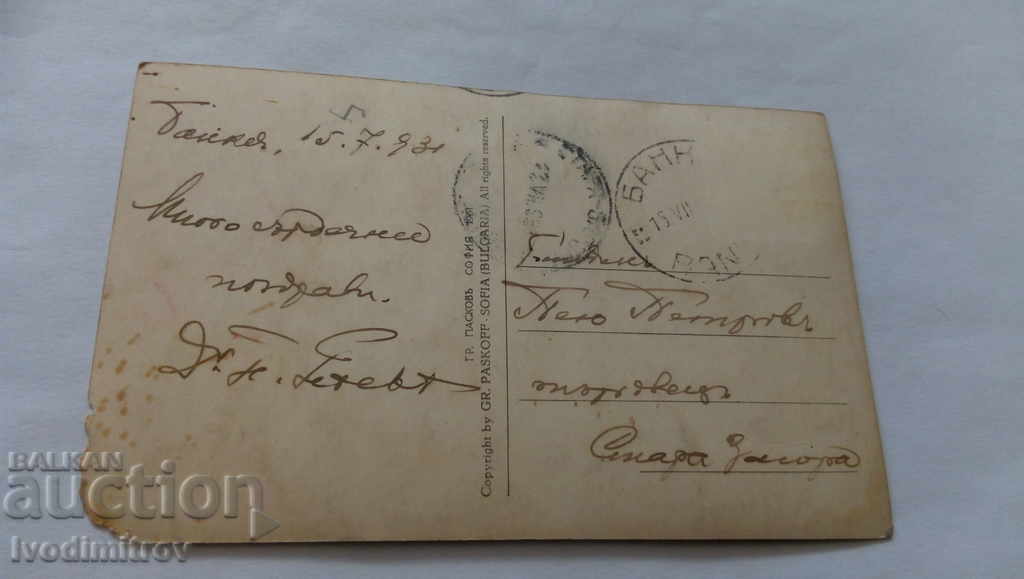 Банкя, 15.7.931
Много сърдечни
поздрави.
Д-ръ
ГР. ПАСКОВЪ СОФИЯ 1931
Copyright by GR. PASKOFF - SOFIA (BULGARIA) All rights reserved.
БАНК
15 VII
Господинъ
Пею Петровъ
търговецъ
Стара Загора
BALKAN
auction
Ivodimitrov